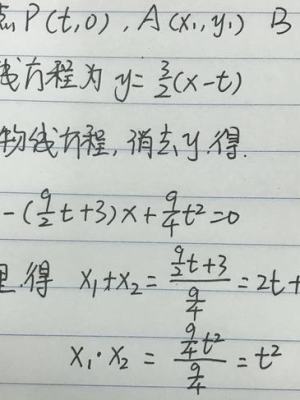 P(t,0), A(x₁,y₁) B
线方程为 y=\frac{3}{2}(x-t)
物线方程,消去y,得.
-(\frac{9}{2}t+3)x+\frac{9}{4}t²=0
得 x₁+x₂=\frac{\frac{9}{2}t+3}{\frac{9}{4}}=2t+
x₁·x₂=\frac{\frac{9}{4}t²}{\frac{9}{4}}=t²